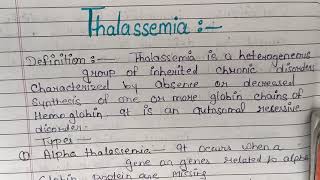 Thalassemia :-
Definition :- Thalassemia is a heterogeneous
group of inherited chronic disorders
Characterized by absence or decreased
Synthesis of one or more globin chains of
Hemoglobin. It is an autosomal recessive
disorder.
Types -
(1) Alpha thalassemia - It occurs when a
gene or genes related to alpha
Globin protein are Missing